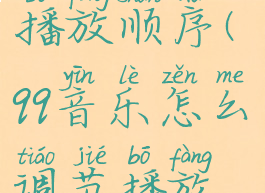 播放顺序(
yīn lè zěn me
99音乐怎么
tiáo jié bō fàng
调节播放